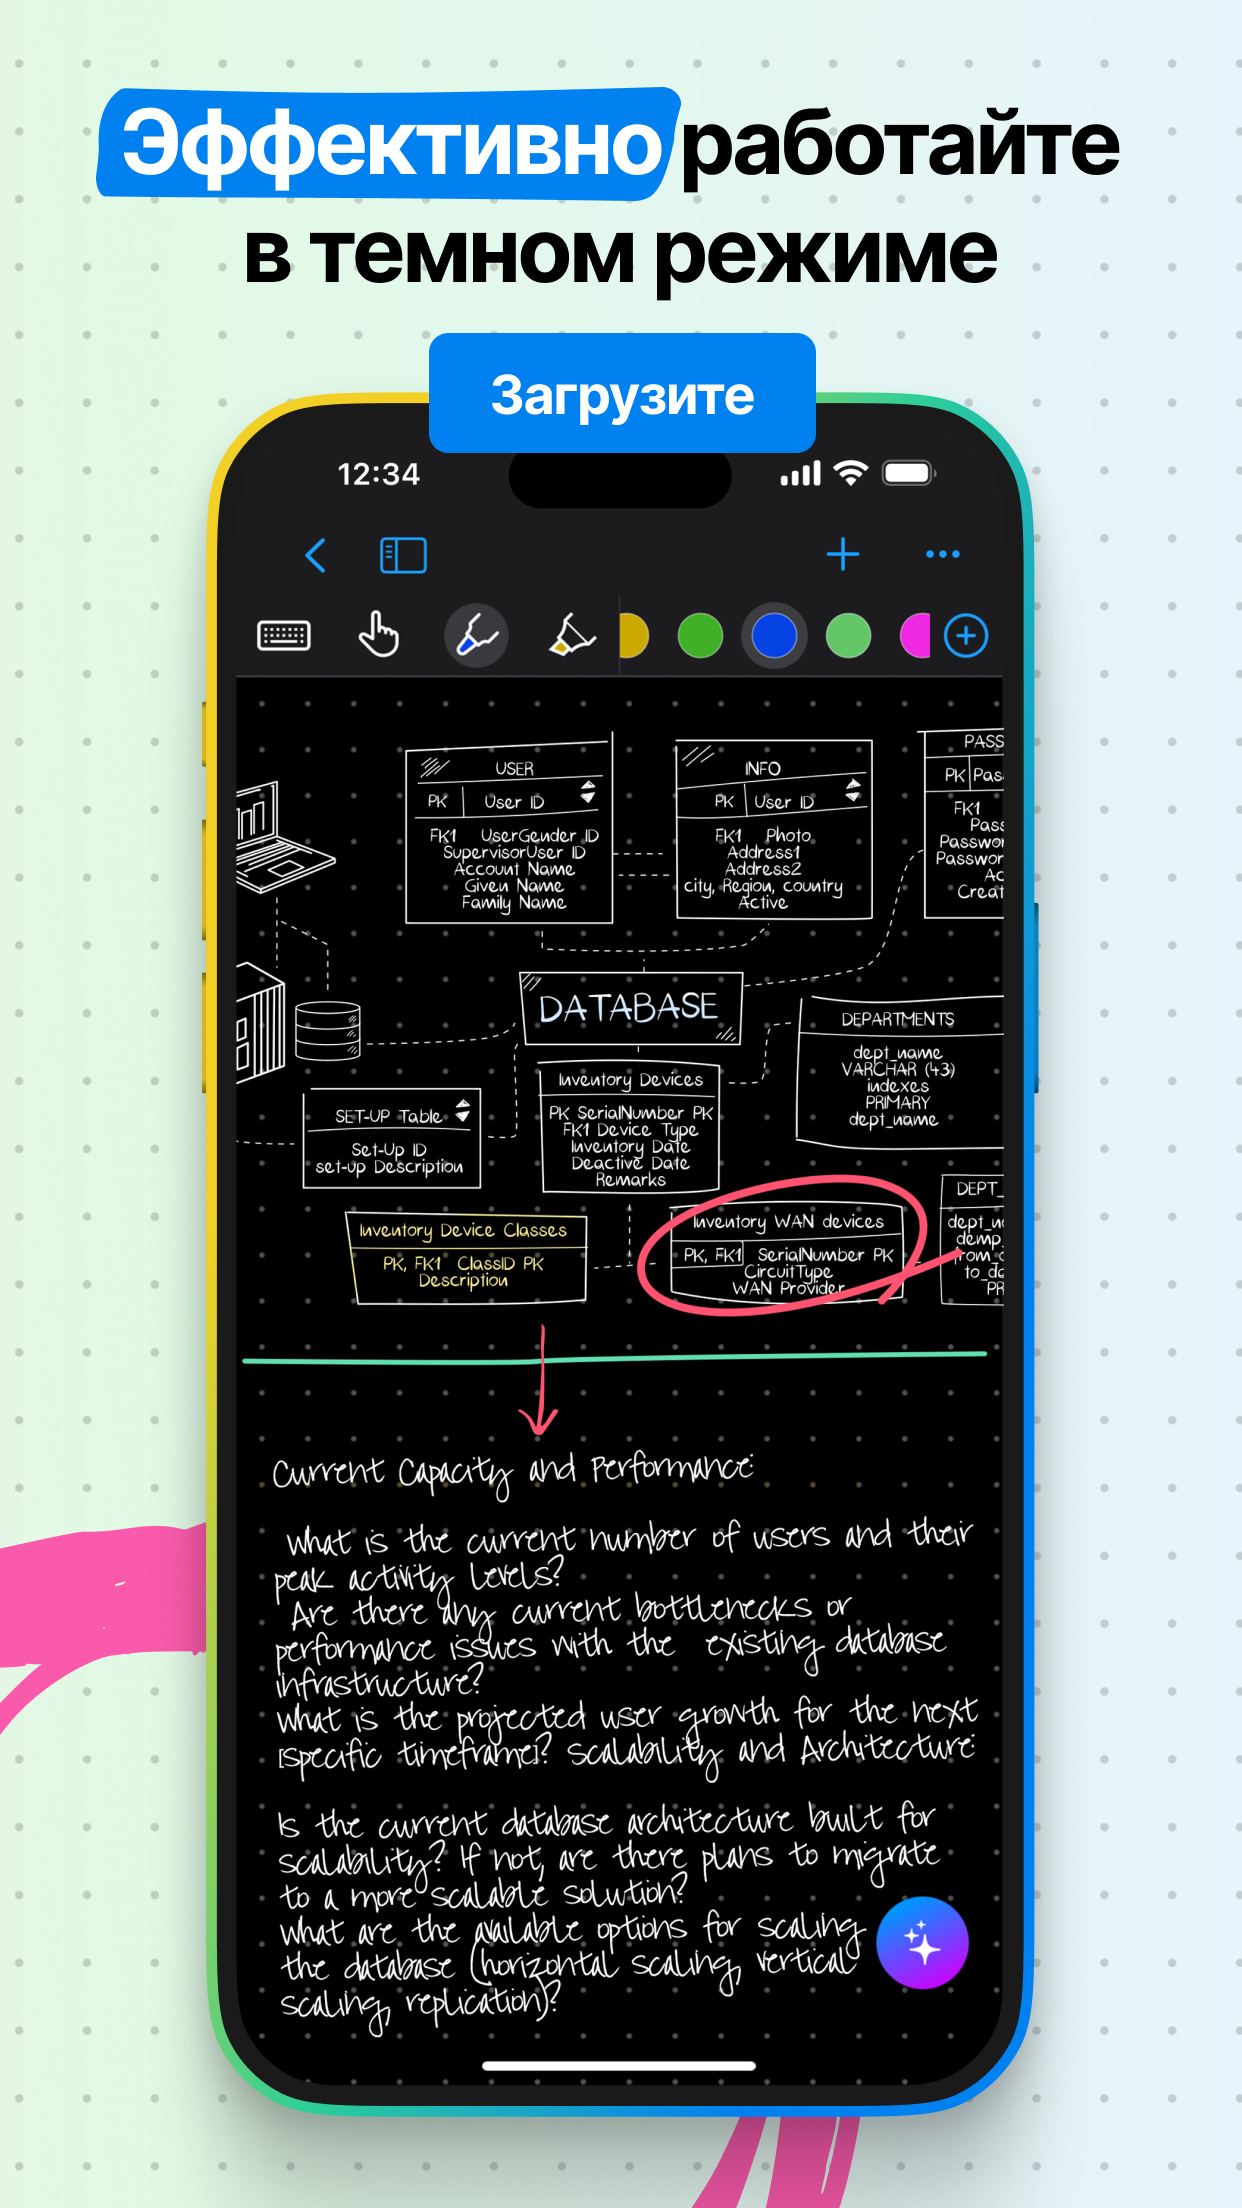 Эффективно работайте
в темном режиме
Загрузите
12:34
USER
PK User ID
FK1 UserGender ID
SupervisorUser ID
Account Name
Given Name
Family Name
INFO
PK User ID
FK1 Photo
Address1
Address2
city, Region, country
Active
PASS
PK Pas
FK1
Pass
Passwor
Password
Ac
Creat
DATABASE
DEPARTMENTS
dept_name
VARCHAR (43)
indexes
PRIMARY
dept_name
Inventory Devices
PK SerialNumber PK
FK1 Device Type
Inventory Date
Deactive Date
Remarks
SET-UP Table
Set-Up ID
set-up Description
Inventory Device Classes
PK, FK1 ClassID PK
Description
Inventory WAN devices
PK, FK1 SerialNumber PK
CircuitType
WAN Provider
DEPT_
dept_n
demp_
from_d
to_da
PR
Current Capacity and Performance:
What is the current number of users and their
peak activity levels?
Are there any current bottlenecks or
performance issues with the existing database
infrastructure?
What is the projected user growth for the next
[specific timeframe]? Scalability and Architecture:
Is the current database architecture built for
scalability? If not, are there plans to migrate
to a more scalable solution?
What are the available options for scaling
the database (horizontal scaling, vertical
scaling, replication)?